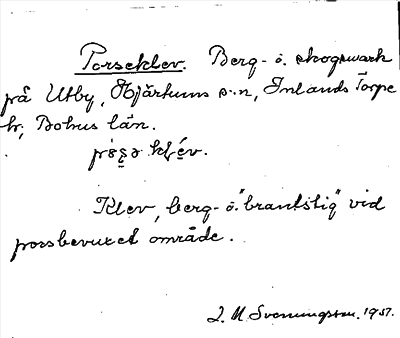 Porseklev. Berg- o. skogsmark
på Utby, Hjärtums s:n, Inlands Torpe
hr, Bohus län.
Klev, berg- o. "brantstig" vid
porsbevuxet område.
J. M. Svenungsson. 1937.